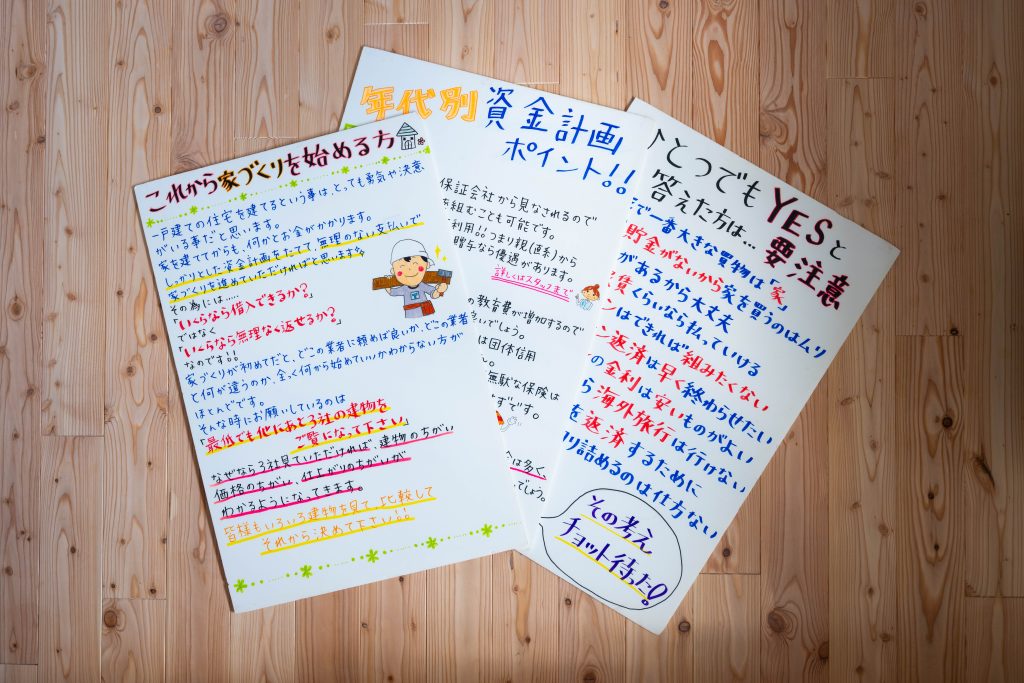 これから家づくりを始める方
一戸建ての住宅を建てるという事は、とっても勇気や決意
がいる事だと思います。
家を建ててからも、何かとお金がかかります。
しっかりとした資金計画をたてて、無理のない支払いで
家づくりを進めていただければと思います。
その為には.....
「いくらなら借入できるか?」
ではなく
「いくらなら無理なく返せるか?」
なのです!!
家づくりが初めてだと、どこの業者に頼めば良いか、どこの業者
と何が違うのか、全く何から始めていいかわからない方が
ほとんどです。
そんな時にお願いしているのは
「最低でも他にあと3社の建物を
ご覧になって下さい」
なぜなら3社見ていただければ、建物のちがい
価格のちがい、仕上がりのちがいが
わかるようになってきます。
皆様もいろいろ建物を見て、比較して
それから決めて下さい!!
年代別資金計画
ポイント!!
保証会社から見なされるので
を組むことも可能です。
利用!!つまり親(直系)から
贈与なら優遇があります。
詳しくはスタッフまで
の教育費が増加するので
いでしょう。
は団体信用
無駄な保険は
ずです。
は多く
でしょう。
とつでもYESと
答えた方は… 要注意
で一番大きな買物は「家」
貯金がないから家を買うのはムリ
があるから大丈夫
賃くらいなら払っていける
ンはできれば組みたくない
ン返済は早く終わらせたい
の金利は安いものがよい
ら海外旅行は行けない
を返済するために
り詰めるのは仕方ない
その考え
チョット待った!